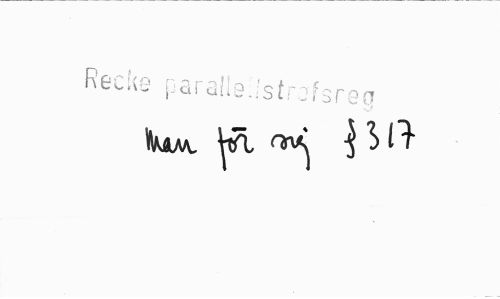 Recke parallellstrofsreg
Man för sig § 317